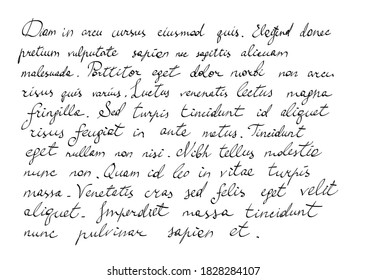 Diam in arcu cursus euismod quis. Eleifend donec
pretium vulputate sapien nec sagittis aliquam
malesuada. Porttitor eget dolor morbi non arcu
risus quis varius. Luctus venenatis lectus magna
fringilla. Sed turpis tincidunt id aliquet
risus feugiat in ante metus. Tincidunt
eget nullam non nisi. Nibh tellus molestie
nunc non. Quam id leo in vitae turpis
massa. Venenatis cras sed felis eget velit
aliquet. Imperdiet massa tincidunt
nunc pulvinar sapien et.
shutterstock.com · 1828284107